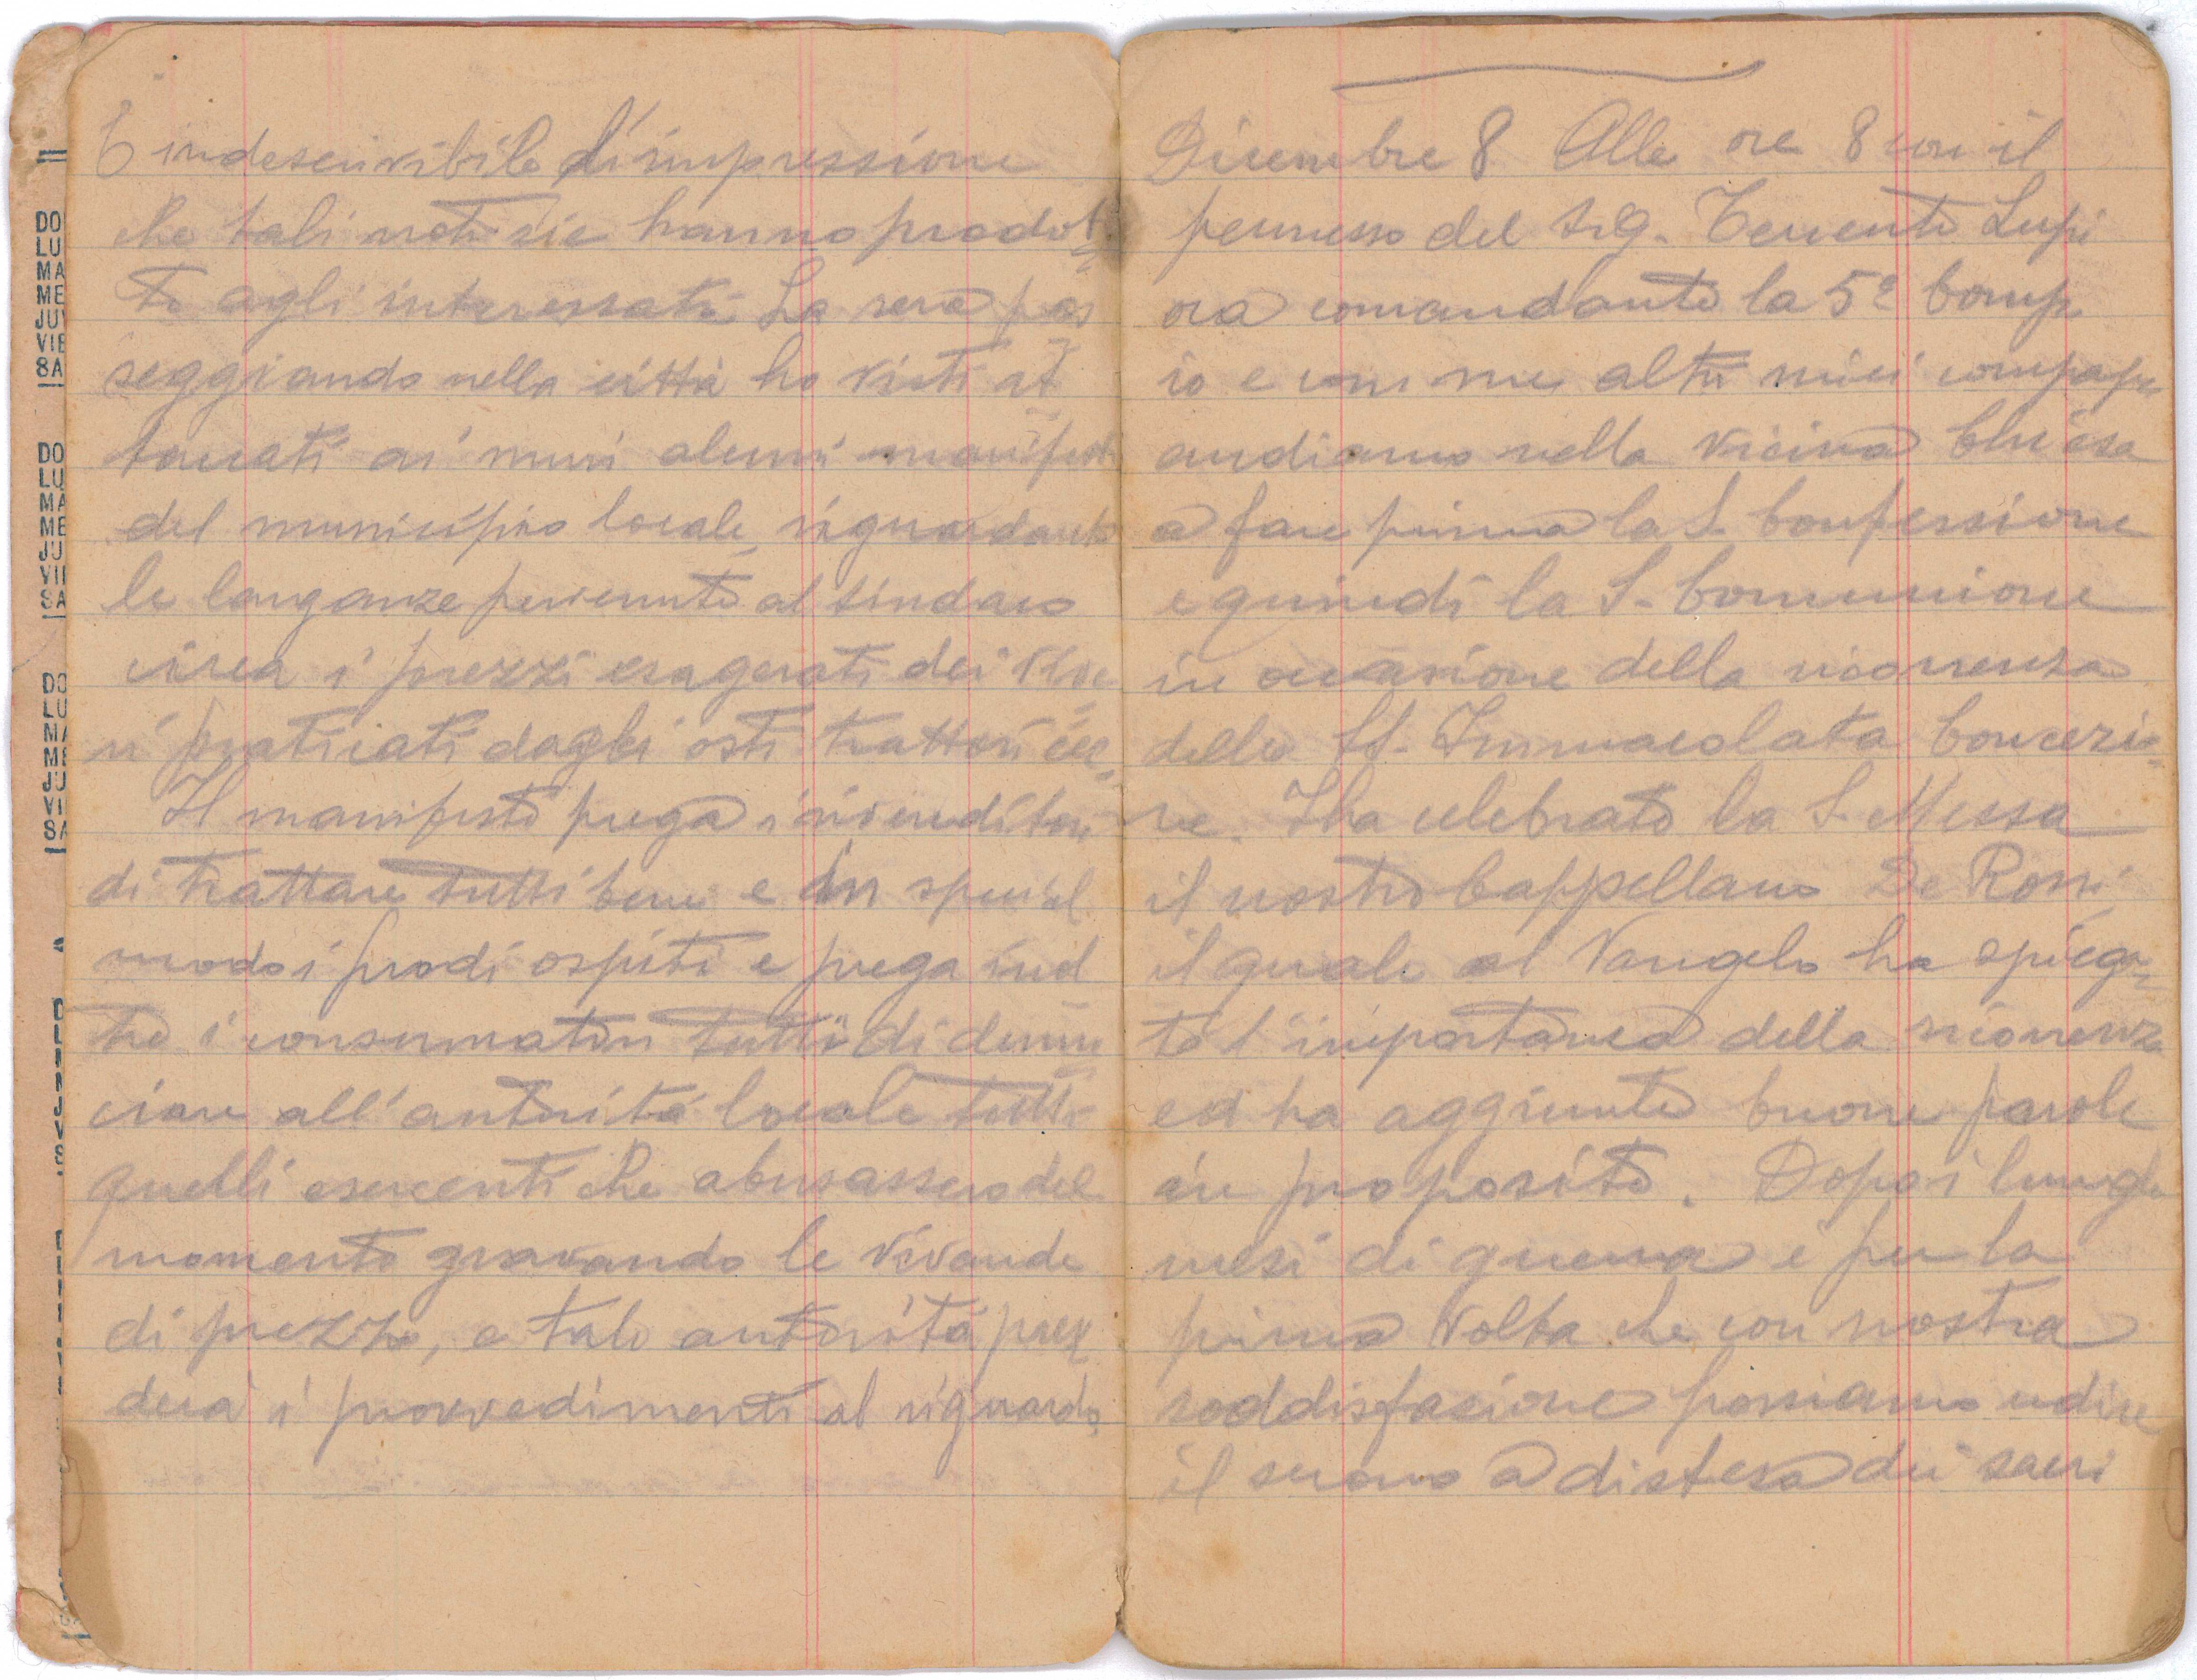 È indescrivibile l'impressione
che tali notizie hanno prodot=
to agli interessati. La sera pas
seggiando nella città ho visti at
taccati ai muri alcuni manifesti
del municipio locale, riguardante
le langanze pervenute al sindaco
circa i prezzi esagerati dei vive
ri praticati dagli osti trattori ecc,
Il manifesto prega i rivenditori
di trattare tutti bene e in special
modo i prodi ospiti e prega ind
tre i consumatori tutti di denun
ciare all'autorità locale tutti
quelli esercenti che abusassero del
momento gravando le vivande
di prezzo, e tale autorità pren
derà i provvedimenti al riguardo.
Dicembre 8 Alle ore 8 con il
permesso del Sig. Tenente Lupi
ora comandante la 5ª Comp.
io e con me altri miei compagni
andiamo nella vicina Chiesa
a fare prima la S. Confessione
e quindi la S. Comunione
in occasione della ricorrenza
della SS. Immacolata Concezio=
ne. Iha celebrato la S. Messa
il nostro Cappellano De Rossi
il quale al Vangelo ha spiega=
to l'importanza della ricorrenza
ed ha aggiunto buone parole
in proposito. Dopo i lunghi
mesi di guerra è per la
prima volta che con nostra
soddisfazione possiamo udire
il suono a distesa dei sacri
DO
LU
MA
ME
JU
VIE
SA
DO
LU
MA
ME
JU
VI
SA
DO
LU
MA
ME
JU
VI
SA